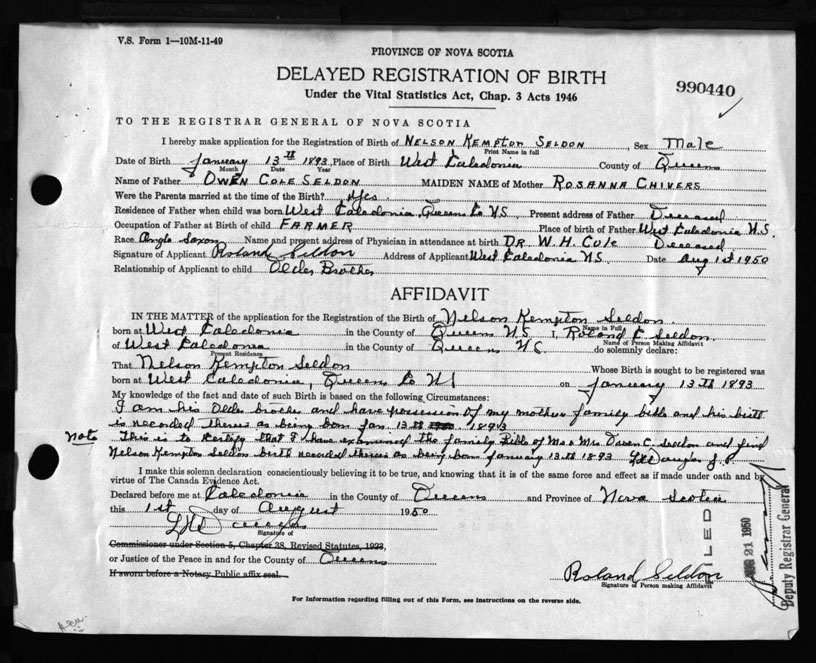 V.S. Form 1—10M-11-49
PROVINCE OF NOVA SCOTIA
DELAYED REGISTRATION OF BIRTH
990440
Under the Vital Statistics Act, Chap. 3 Acts 1946
TO THE REGISTRAR GENERAL OF NOVA SCOTIA
I hereby make application for the Registration of Birth of NELSON KEMPTON SELDON, Sex Male
Print Name in full
Date of Birth January 13th 1893, Place of Birth West Caledonia County of Queens
Month Date Year
Name of Father OWEN COLE SELDON MAIDEN NAME of Mother ROSANNA CHIVERS
Were the Parents married at the time of the Birth? Yes.
Residence of Father when child was born West Caledonia, Queens Co NS, Present address of Father Deceased
Occupation of Father at Birth of child FARMER Place of birth of Father West Caledonia N.S.
Race Anglo Saxon Name and present address of Physician in attendance at birth DR. W. H. Cole Deceased
Signature of Applicant Roland Seldon Address of Applicant West Caledonia NS. Date Aug 1st 1950
Relationship of Applicant to child Older Brother
AFFIDAVIT
IN THE MATTER of the application for the Registration of the Birth of Nelson Kempton Seldon.
Name in Full
born at West Caledonia in the County of Queens NS I, Roland C. Seldon.
Name of Person Making Affidavit
of West Caledonia in the County of Queens NS do solemnly declare:
Present Residence
That Nelson Kempton Seldon Whose Birth is sought to be registered was
born at West Caledonia, Queens Co NS on January 13th 1893
My knowledge of the fact and date of such Birth is based on the following Circumstances:
I am his Older brother and have possession of my mother family bible and his birth
is recorded therein as being born Jan. 13th 1893
Note This is to Certify that I have examined the family Bible of Mr & Mrs Owen C. Seldon and find
Nelson Kempton Seldon birth recorded therein as being born January 13th 1893 J.P.
I make this solemn declaration conscientiously believing it to be true, and knowing that it is of the same force and effect as if made under oath and by
virtue of The Canada Evidence Act.
Declared before me at Caledonia in the County of Queens and Province of Nova Scotia
this 1st day of August 1950
Signature of
Commissioner under Section 5, Chapter 38, Revised Statutes, 1923,
or Justice of the Peace in and for the County of Queens
If sworn before a Notary Public affix seal.
Roland Seldon
Signature of Person making Affidavit
FILED
AUG 21 1950
Deputy Registrar General
For Information regarding filling out of this Form, see instructions on the reverse side.